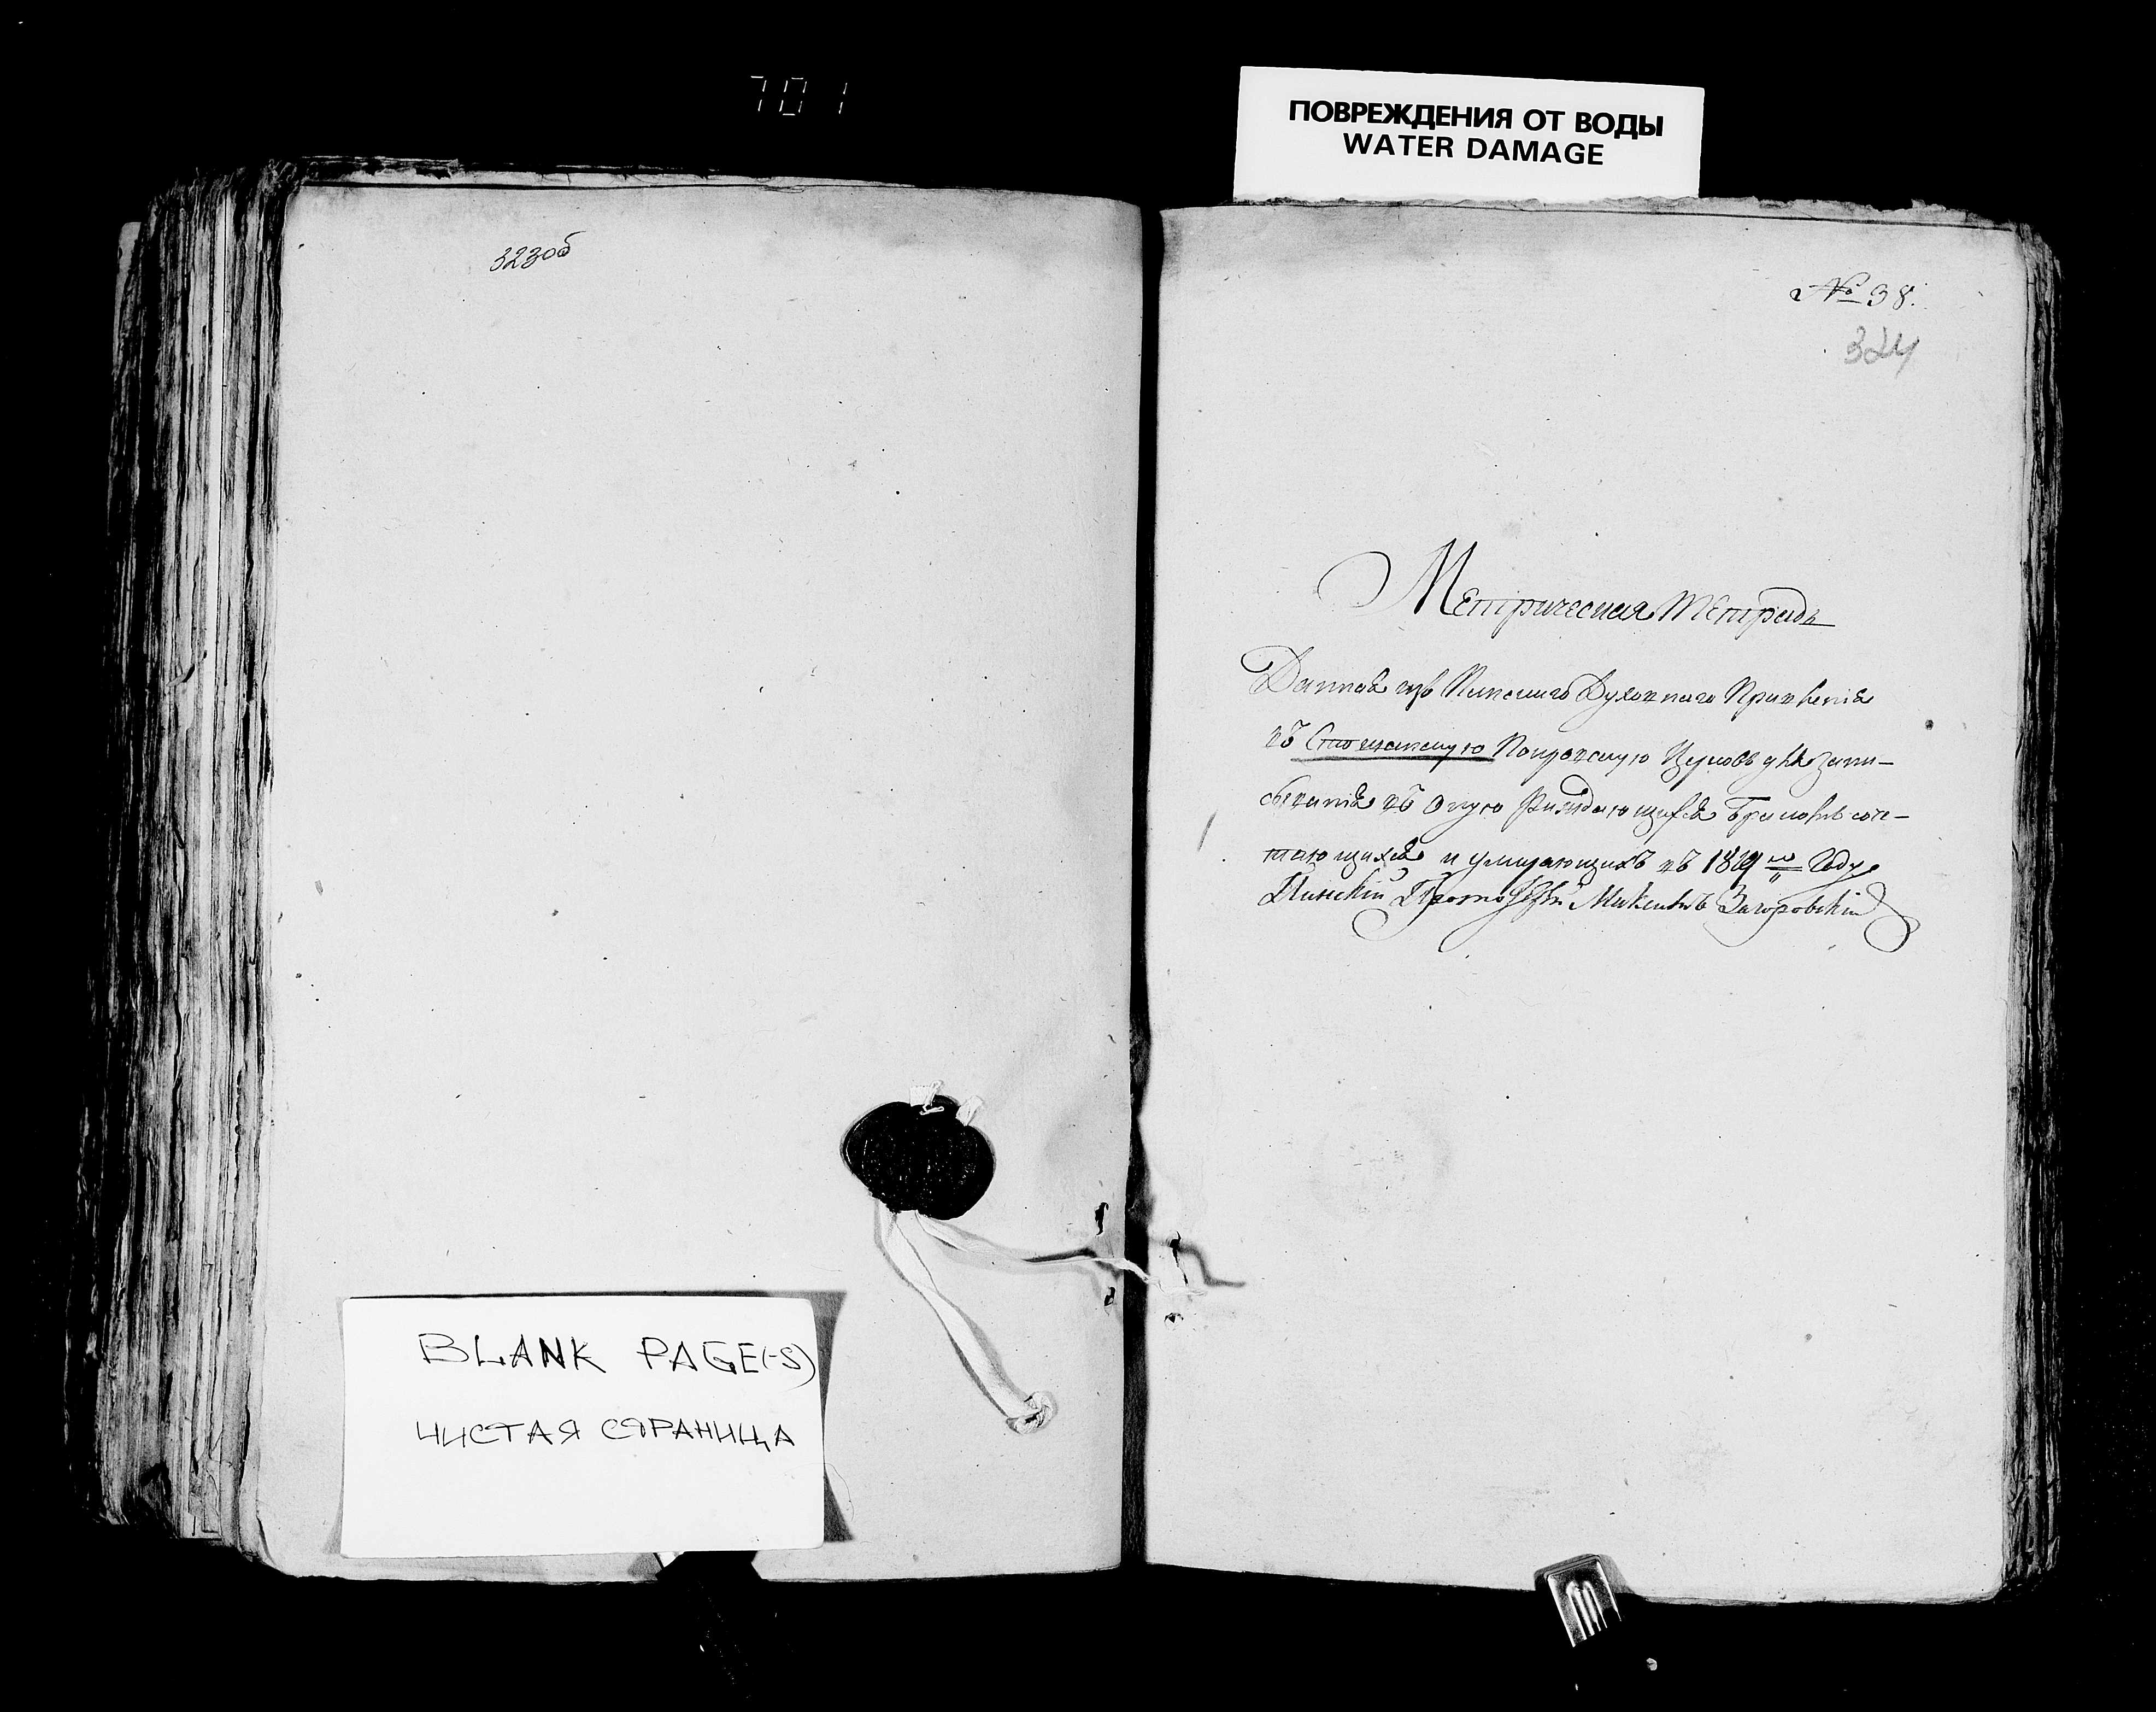 701
ПОВРЕЖДЕНИЯ ОТ ВОДЫ
WATER DAMAGE
323об
№ 38.
324
Метрическая Тетрадь
Данная изъ Пинскаго Духовнаго Правленія
въ Покровскую Церковь для запи-
сыванія въ оную Раждающихся Бракомъ соче-
тающихся и умирающихъ въ 1819 мъ Году
Пинскій Протоіерей Загоровскій
BLANK PAGE(-S)
ЧИСТАЯ СТРАНИЦА